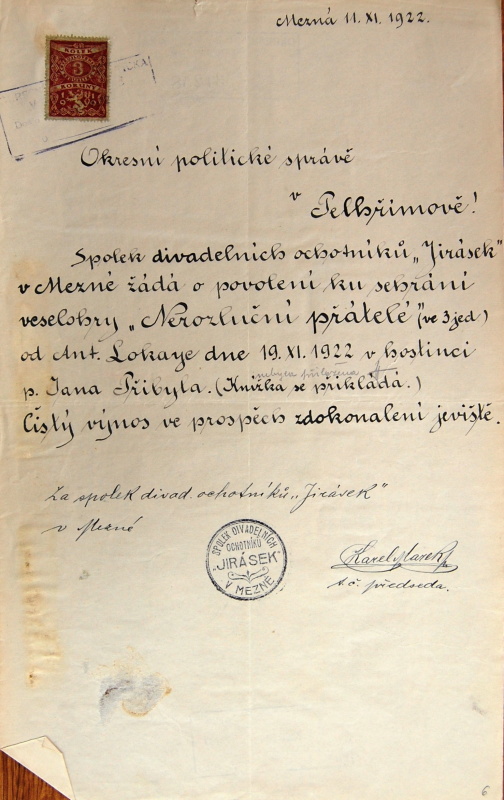 Mezná 11. XI. 1922.
KOLEK
3
KORUNY
Okresní politické správě
v
Pelhřimově!
Spolek divadelních ochotníků „Jirásek"
v Mezné žádá o povolení ku sehrání
veselohry „Nerozluční přátelé" (ve 3 jed)
od Ant. Lokaye dne 19. XI. 1922 v hostinci
nebyla přiložena
p. Jana Přibyla. (Knížka se přikládá.)
Čistý výnos ve prospěch zdokonalení jeviště.
Za spolek divad. ochotníků „Jirásek"
v Mezné
SPOLEK DIVADELNÍCH
OCHOTNÍKŮ
„JIRÁSEK"
V MEZNÉ
Karel Marek
t. č. předseda.
6